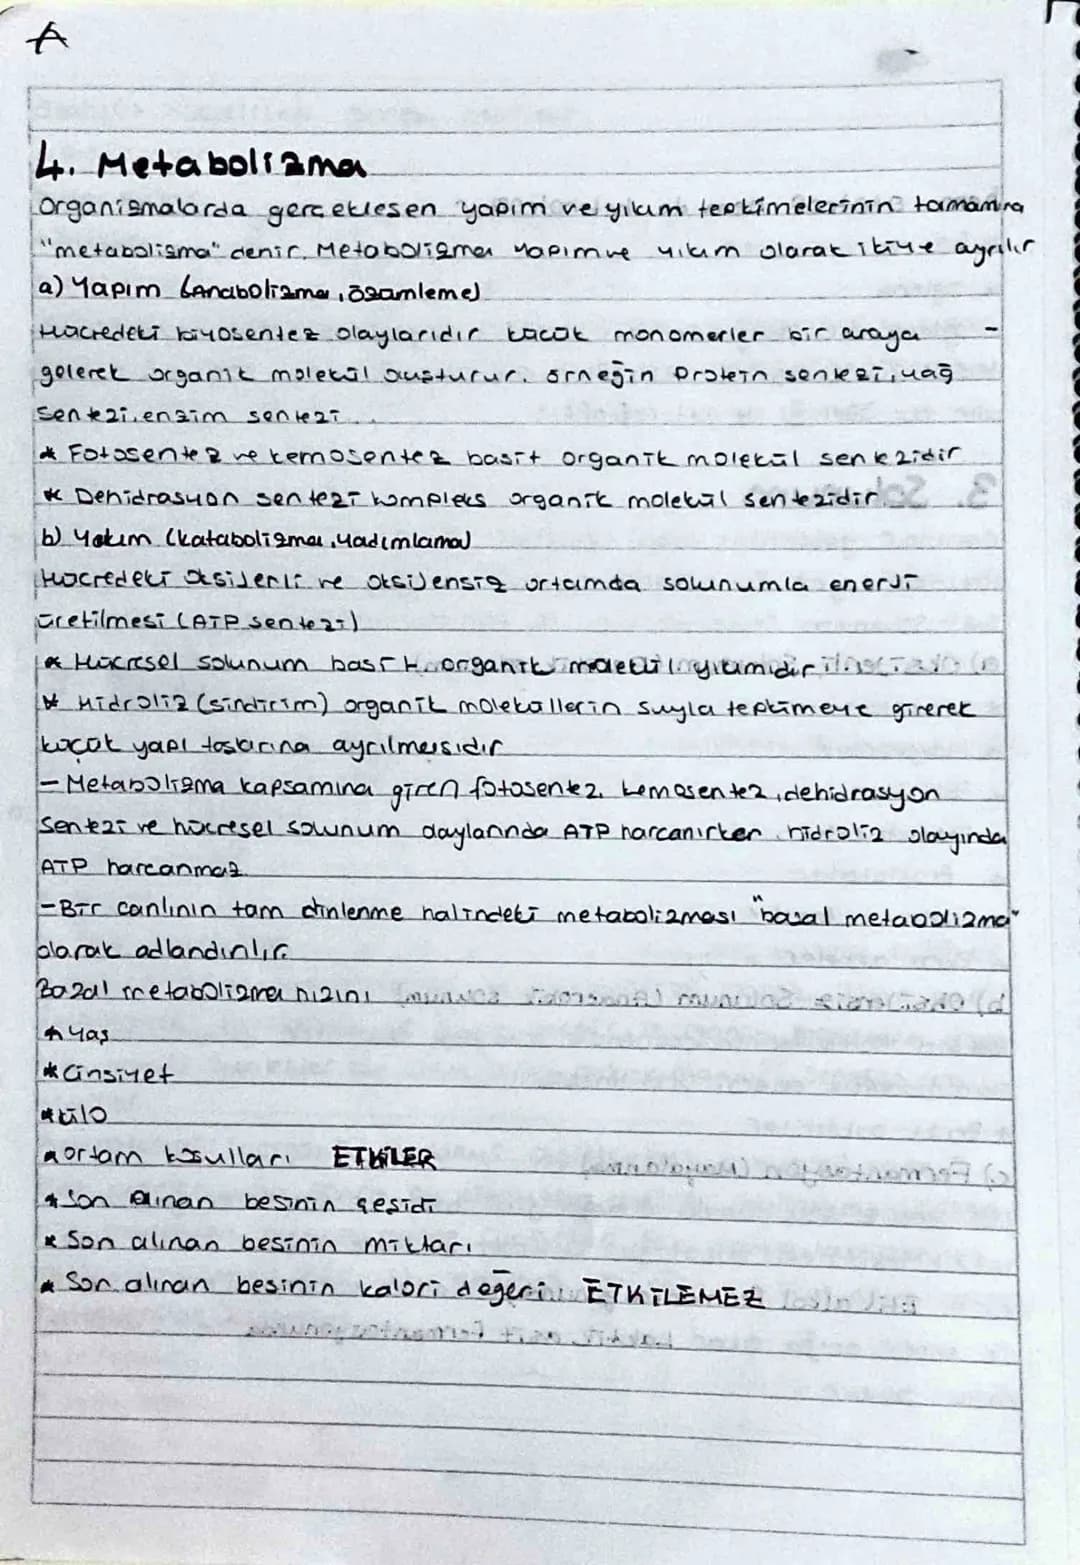 A
4. Metabolizma
Organizmalarda gerçekleşen yapım ve yıkım tepkimelerinin tamamına
"metabolizma" denir. Metabolizma yapım ve yıkım olarak ikiye ayrılır
a) Yapım (Anabolizma, özümleme)
Hücredeki biyosentez olaylarıdır küçük monomerler bir araya -
gelerek organik molekül oluşturur. örneğin Protein sentezi, yağ
sentezi, enzim sentezi...
* Fotosentez ve kemosentez basit organik molekül sentezidir
* Dehidrasyon sentezi kompleks organik molekül sentezidir
b) Yıkım (katabolizma, yadımlama)
Hücredeki oksijenli ve oksijensiz ortamda solunumla enerji
üretilmesi (ATP sentezi)
* Hücresel solunum basit organik molekül yıkımıdır
* Hidroliz (sindirim) organik moleküllerin suyla tepkimeye girerek
küçük yapı taşlarına ayrılmasıdır
- Metabolizma kapsamına giren fotosentez, kemosentez, dehidrasyon
sentezi ve hücresel solunum olaylarında ATP harcanırken hidroliz olayında
ATP harcanmaz.
- Bir canlının tam dinlenme halindeki metabolizması "bazal metabolizma"
olarak adlandırılır.
Bazal metabolizma hızını
* Yaş
* Cinsiyet
* kilo
* ortam koşulları ETKİLER
* Son alınan besinin çeşidi
* Son alınan besinin miktarı
* Son alınan besinin kalori değeri ETKİLEMEZ